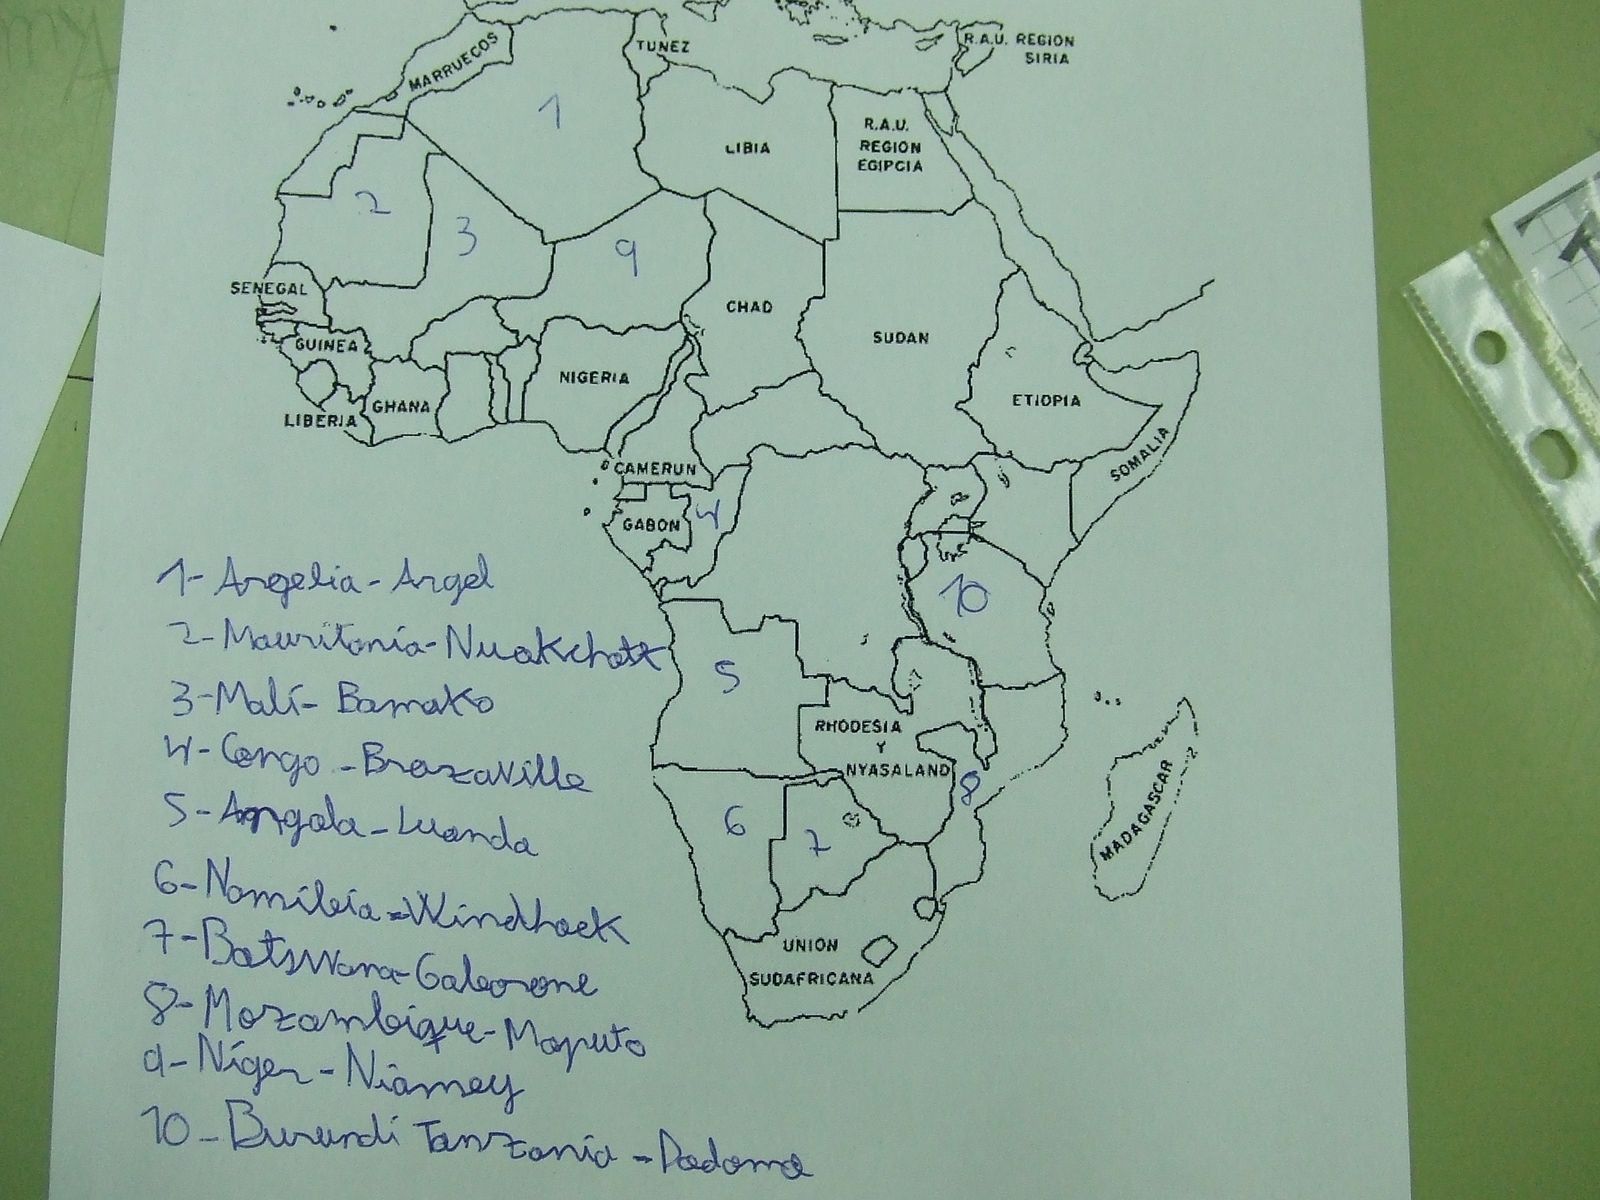 MARRUECOS
TUNEZ
R.A.U. REGION
SIRIA
1
LIBIA
R.A.U.
REGION
EGIPCIA
2
3
9
SENEGAL
CHAD
SUDAN
GUINEA
NIGERIA
LIBERIA
GHANA
ETIOPIA
SOMALIA
CAMERUN
GABON
4
10
5
RHODESIA
Y
NYASALAND
8
6
7
MADAGASCAR
UNION
SUDAFRICANA
1- Argelia - Argel
2- Mauritania - Nuakchott
3- Malí - Bamako
4- Congo - Brazaville
5- Angola - Luanda
6- Namibia - Windhoek
7- Botswana - Gaborone
8- Mozambique - Maputo
9- Níger - Niamey
10- Burundi Tanzania - Dodoma